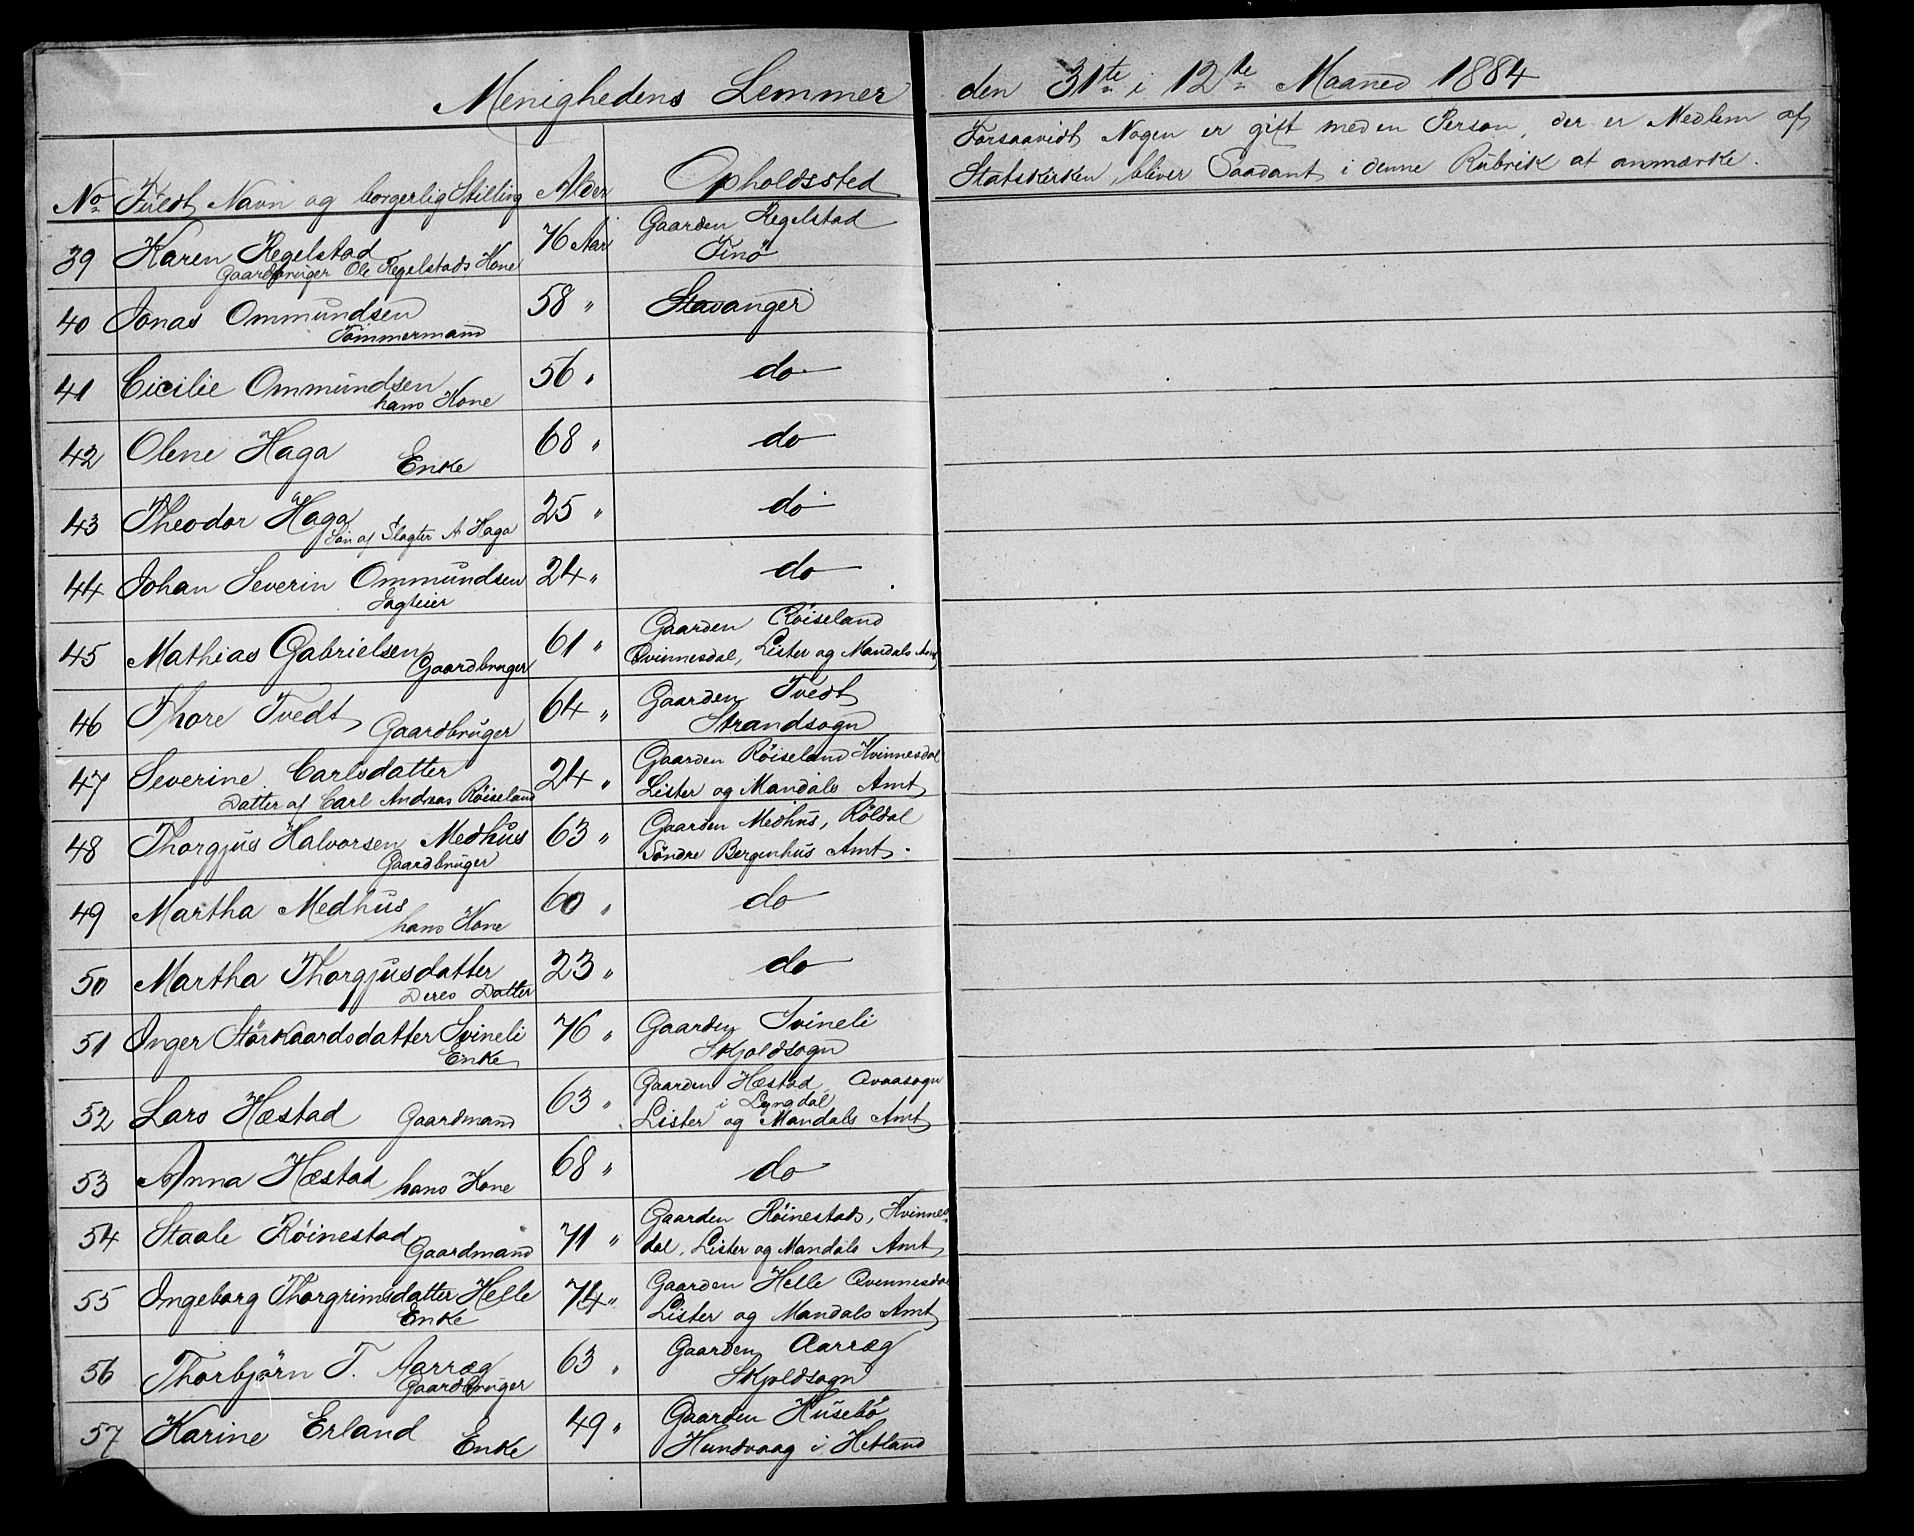 Menighedens Lemmer den 31te i 12te Maaned 1884
Forsaavidt Nogen er gift med en Person, der er Medlem af
Statskirken, bliver Saadant i denne Rubrik at anmærke.
No Fuldt Navn og borgerlig Stilling Alder Opholdssted
39 Karen Regelstad 76 Aar Gaarden Regelstad
Gaardbruger Ole Regelstads Kone Finö
40 Jonas Ommundsen 58 " Stavanger
Tömmermand
41 Cicilie Ommundsen 56 " do
hans Kone
42 Olene Haga 68 " do
Enke
43 Theodor Haga 25 " do
Sön af Slagter A Haga
44 Johan Severin Ommundsen 24 " do
Jagteier
45 Mathias Gabrielsen 61 " Gaarden Röiseland
Gaardbruger Qvinnesdal, Lister og Mandals Amt
46 Thore Tvedt 64 " Gaarden Tvedt
Gaardbruger Strandsogn
47 Severine Carlsdatter 24 " Gaarden Röiseland Kvinnesdal
Datter af Carl Andreas Röiseland Lister og Mandals Amt
48 Thorgjus Halvorsen Medhus 63 " Gaarden Medhus, Röldal
Gaardbruger Söndre Bergenhus Amt.
49 Martha Medhus 60 " do
hans Kone
50 Martha Thorgjusdatter 23 " do
Deres Datter
51 Inger Störkaardsdatter Svineli 76 " Gaarden Svineli
Enke Skjoldsogn
52 Lars Hæstad Gaardmand 63 " Gaarden Hæstad, Qvaasogn
i Lyngdal
Lister og Mandals Amt
53 Anna Hæstad hans Kone 68 " do
54 Staale Röinestad 71 " Gaarden Röinestads, Kvinnes-
Gaardmand dal, Lister og Mandals Amt
55 Ingeborg Thorgrimsdatter Helle 74 " Gaarden Helle Qvinnesdal
Enke Lister og Mandals Amt
56 Thorbjörn T. Aarræg 63 " Gaarden Aarræg
Gaardbruger Skjoldsogn
57 Karine Erland 49 " Gaarden Husebö
Enke Hundvaag i Hetland